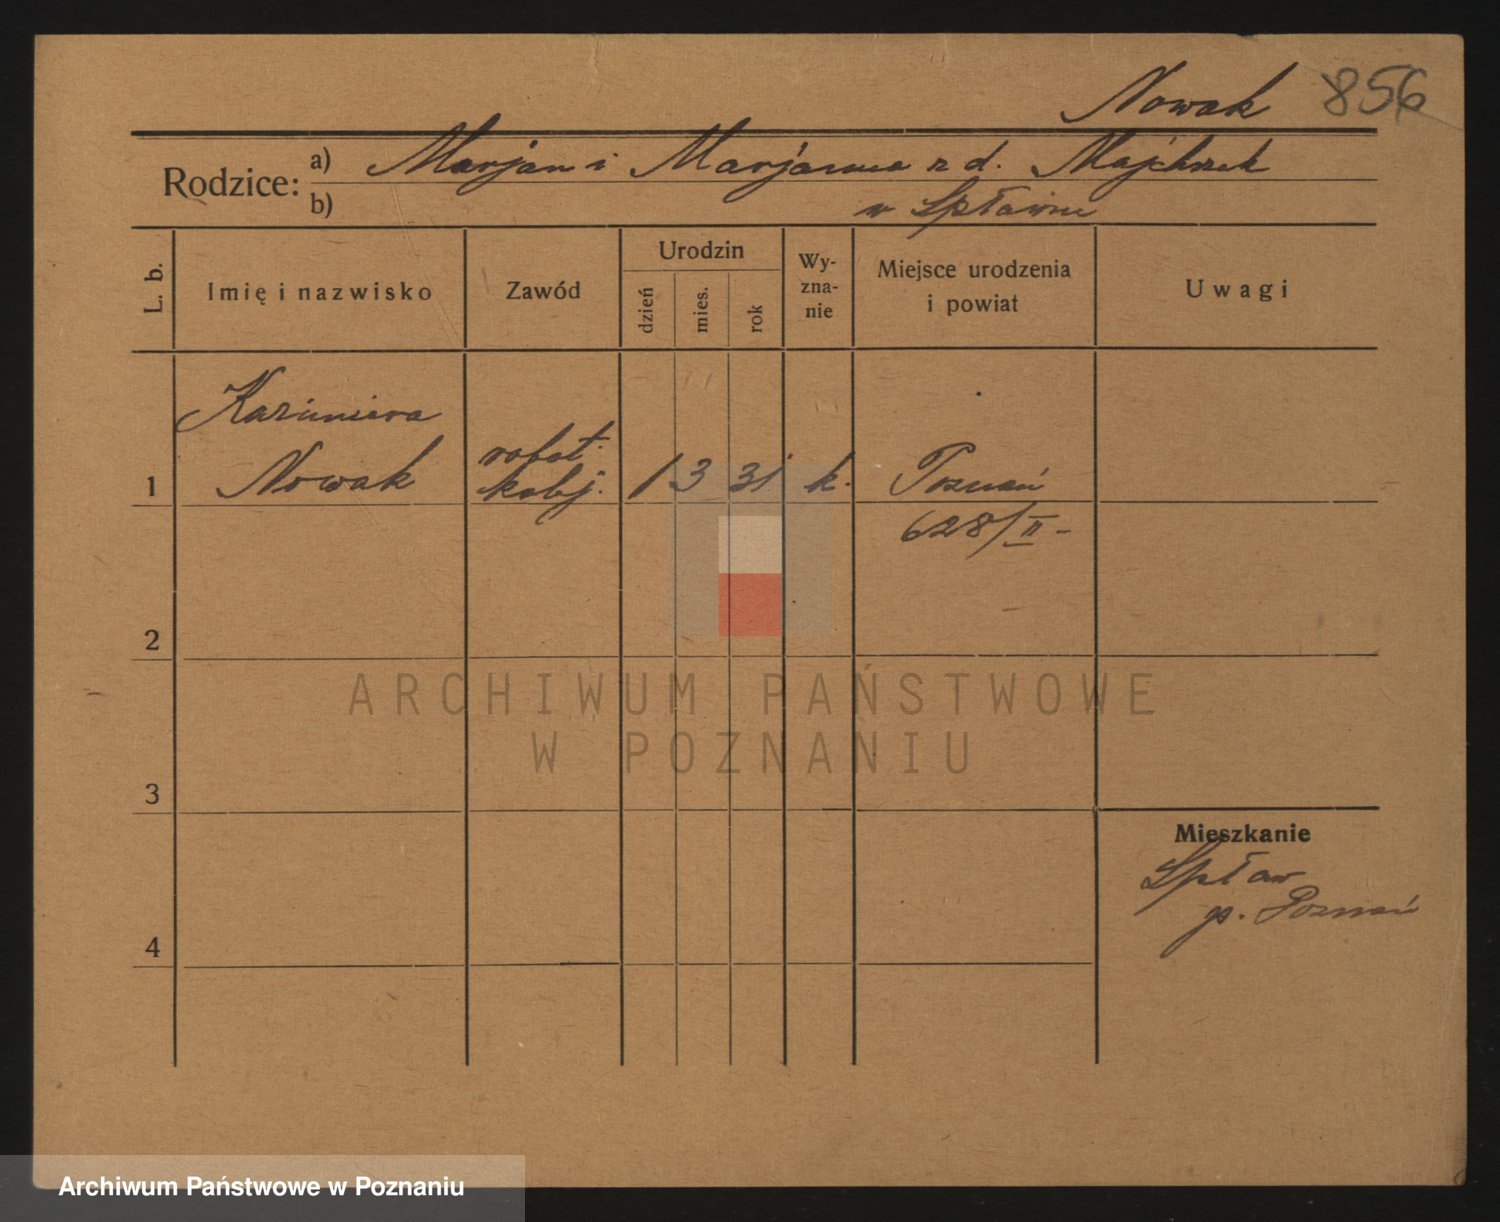 Nowak 856
Rodzice: a) Marjan i Marjanna z d. Majchrzak
b) w Spławiu
L. b. Imię i nazwisko Zawód Urodzin dzień mies. rok Wy-zna-nie Miejsce urodzenia i powiat Uwagi
Kazimiera
1 Nowak robot. kolej. 1 3 31 k. Poznań
628/II -
2
ARCHIWUM PAŃSTWOWE
W POZNANIU
3
Mieszkanie
Spław
p. Poznań
4
Archiwum Państwowe w Poznaniu